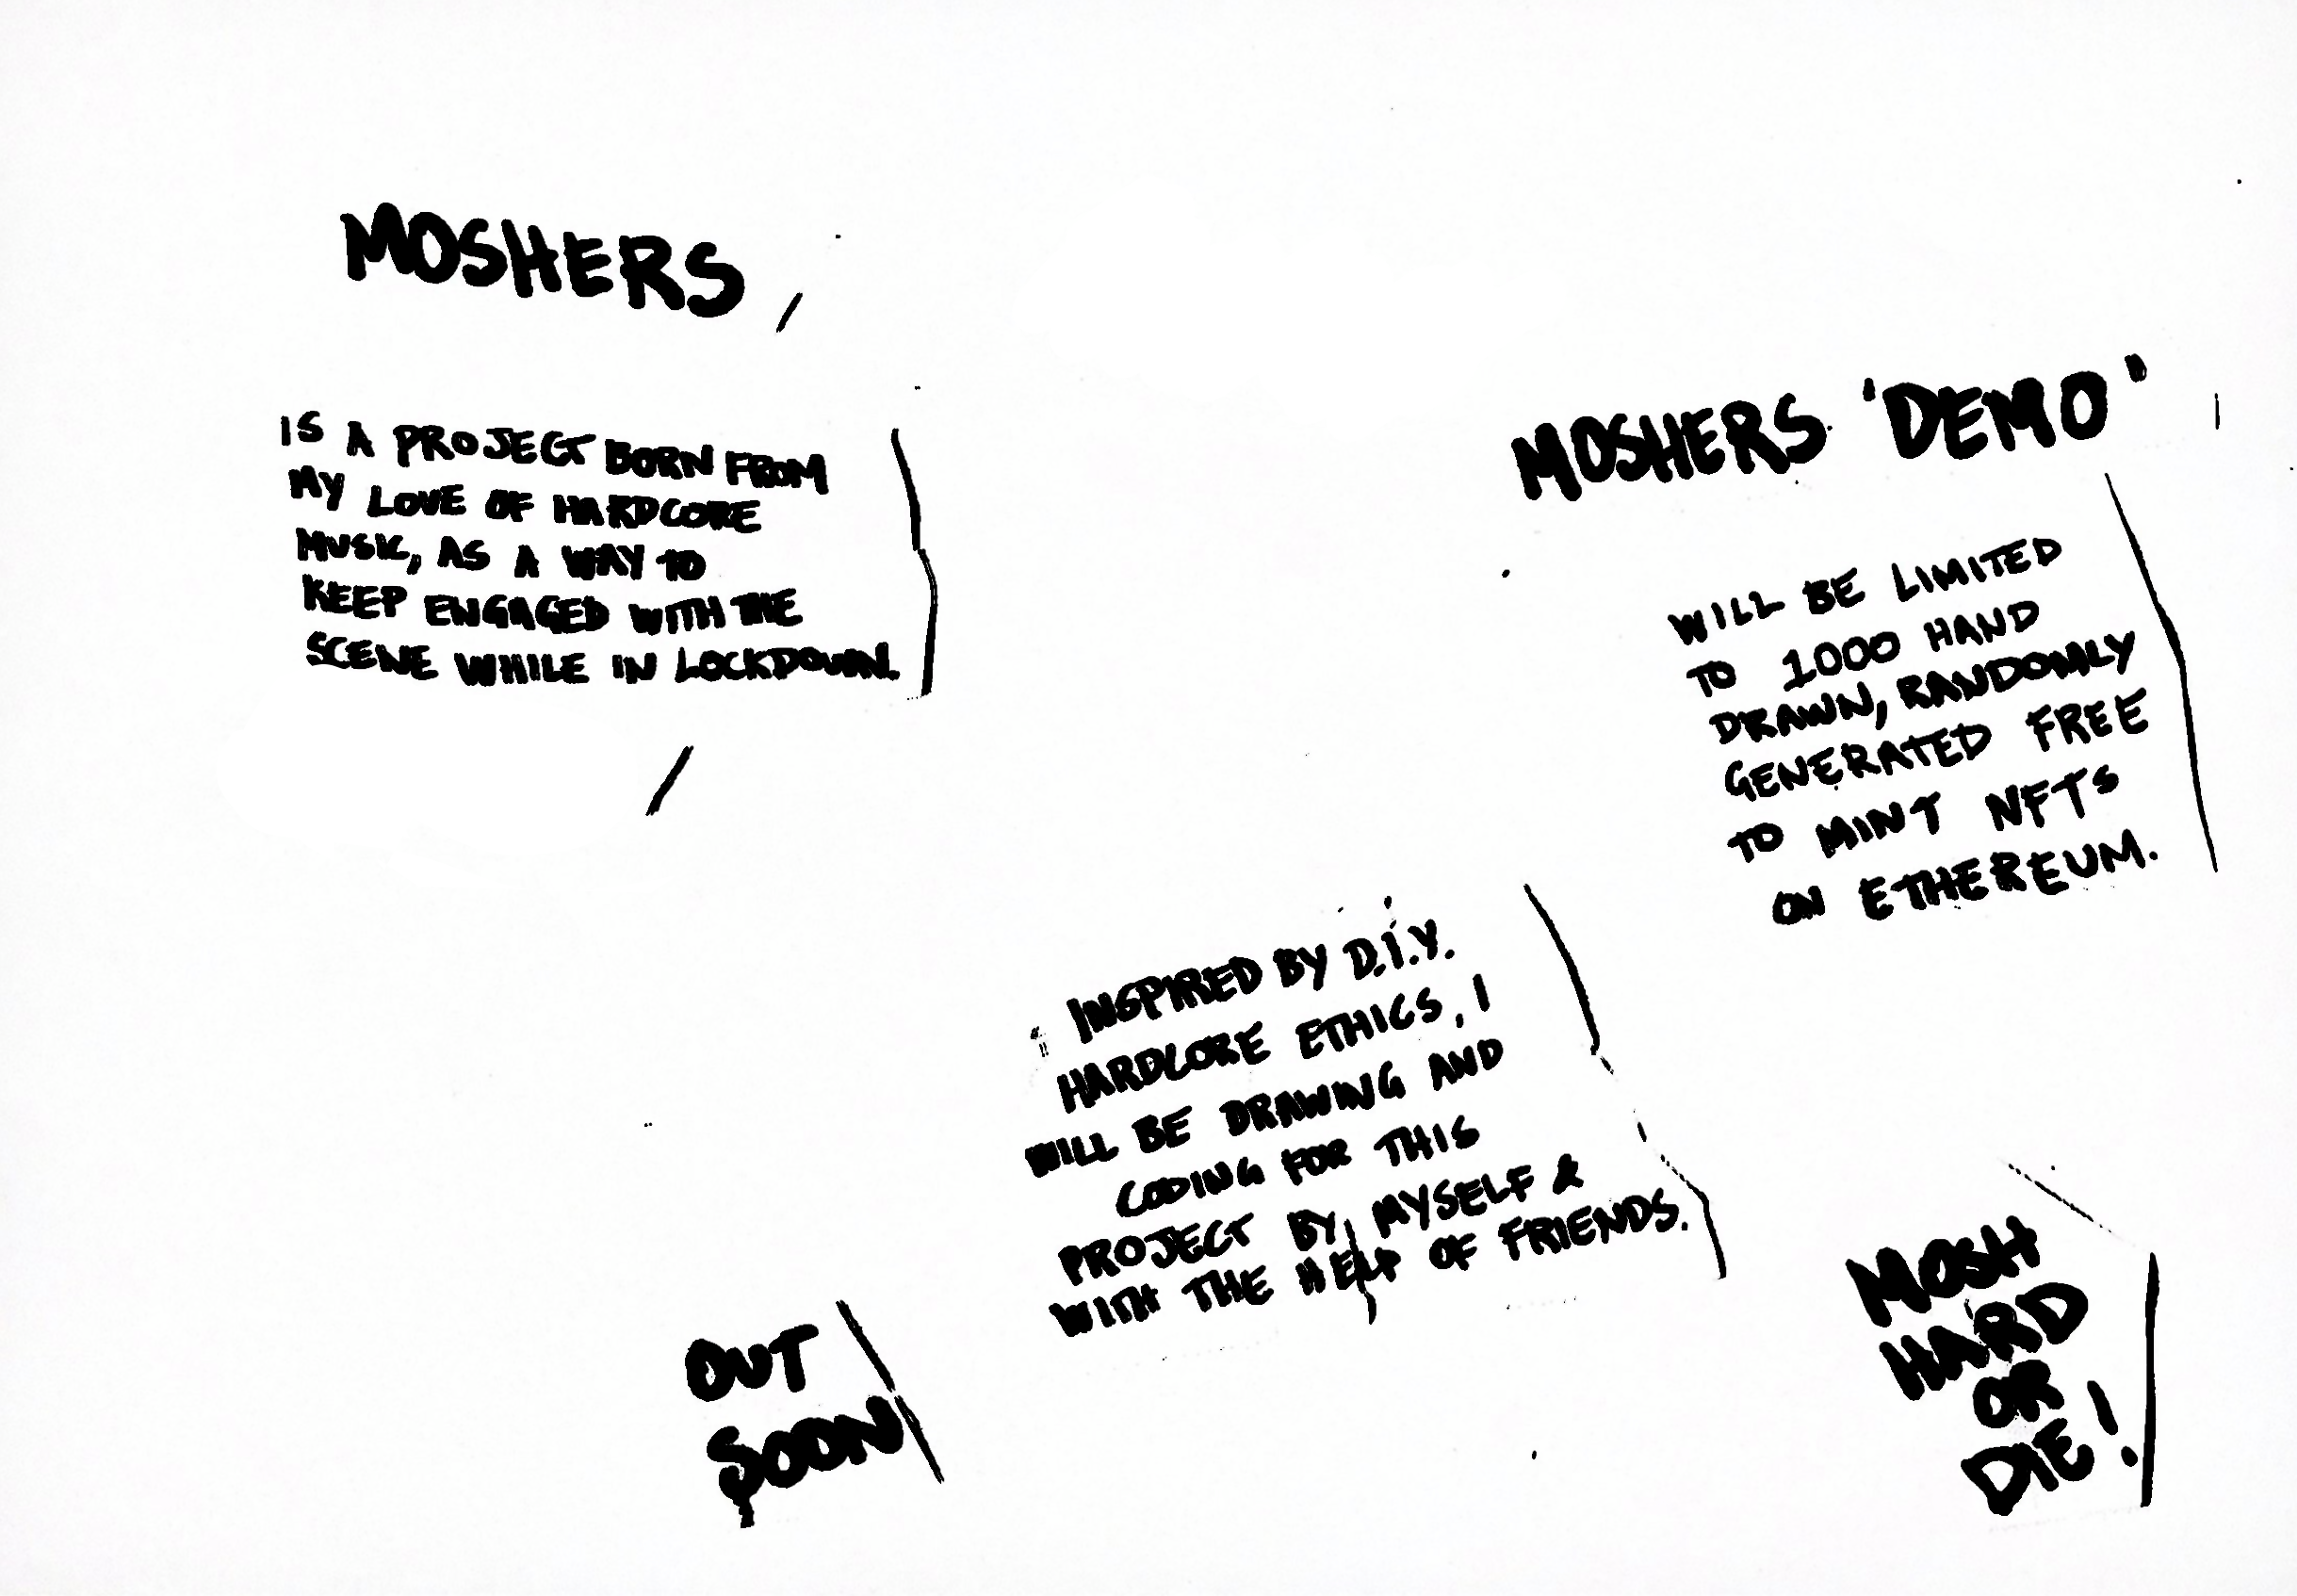 MOSHERS
IS A PROJECT BORN FROM
MY LOVE OF HARDCORE
MUSIC, AS A WAY TO
KEEP ENGAGED WITH THE
SCENE WHILE IN LOCKDOWN.
MOSHERS "DEMO"
WILL BE LIMITED
TO 1000 HAND
DRAWN, RANDOMLY
GENERATED FREE
TO MINT NFTs
ON ETHEREUM.
INSPIRED BY D.I.Y.
HARDCORE ETHICS, I
WILL BE DRAWING AND
CODING FOR THIS
PROJECT BY MYSELF &
WITH THE HELP OF FRIENDS.
OUT
SOON
MOSH
HARD
OR
DIE!